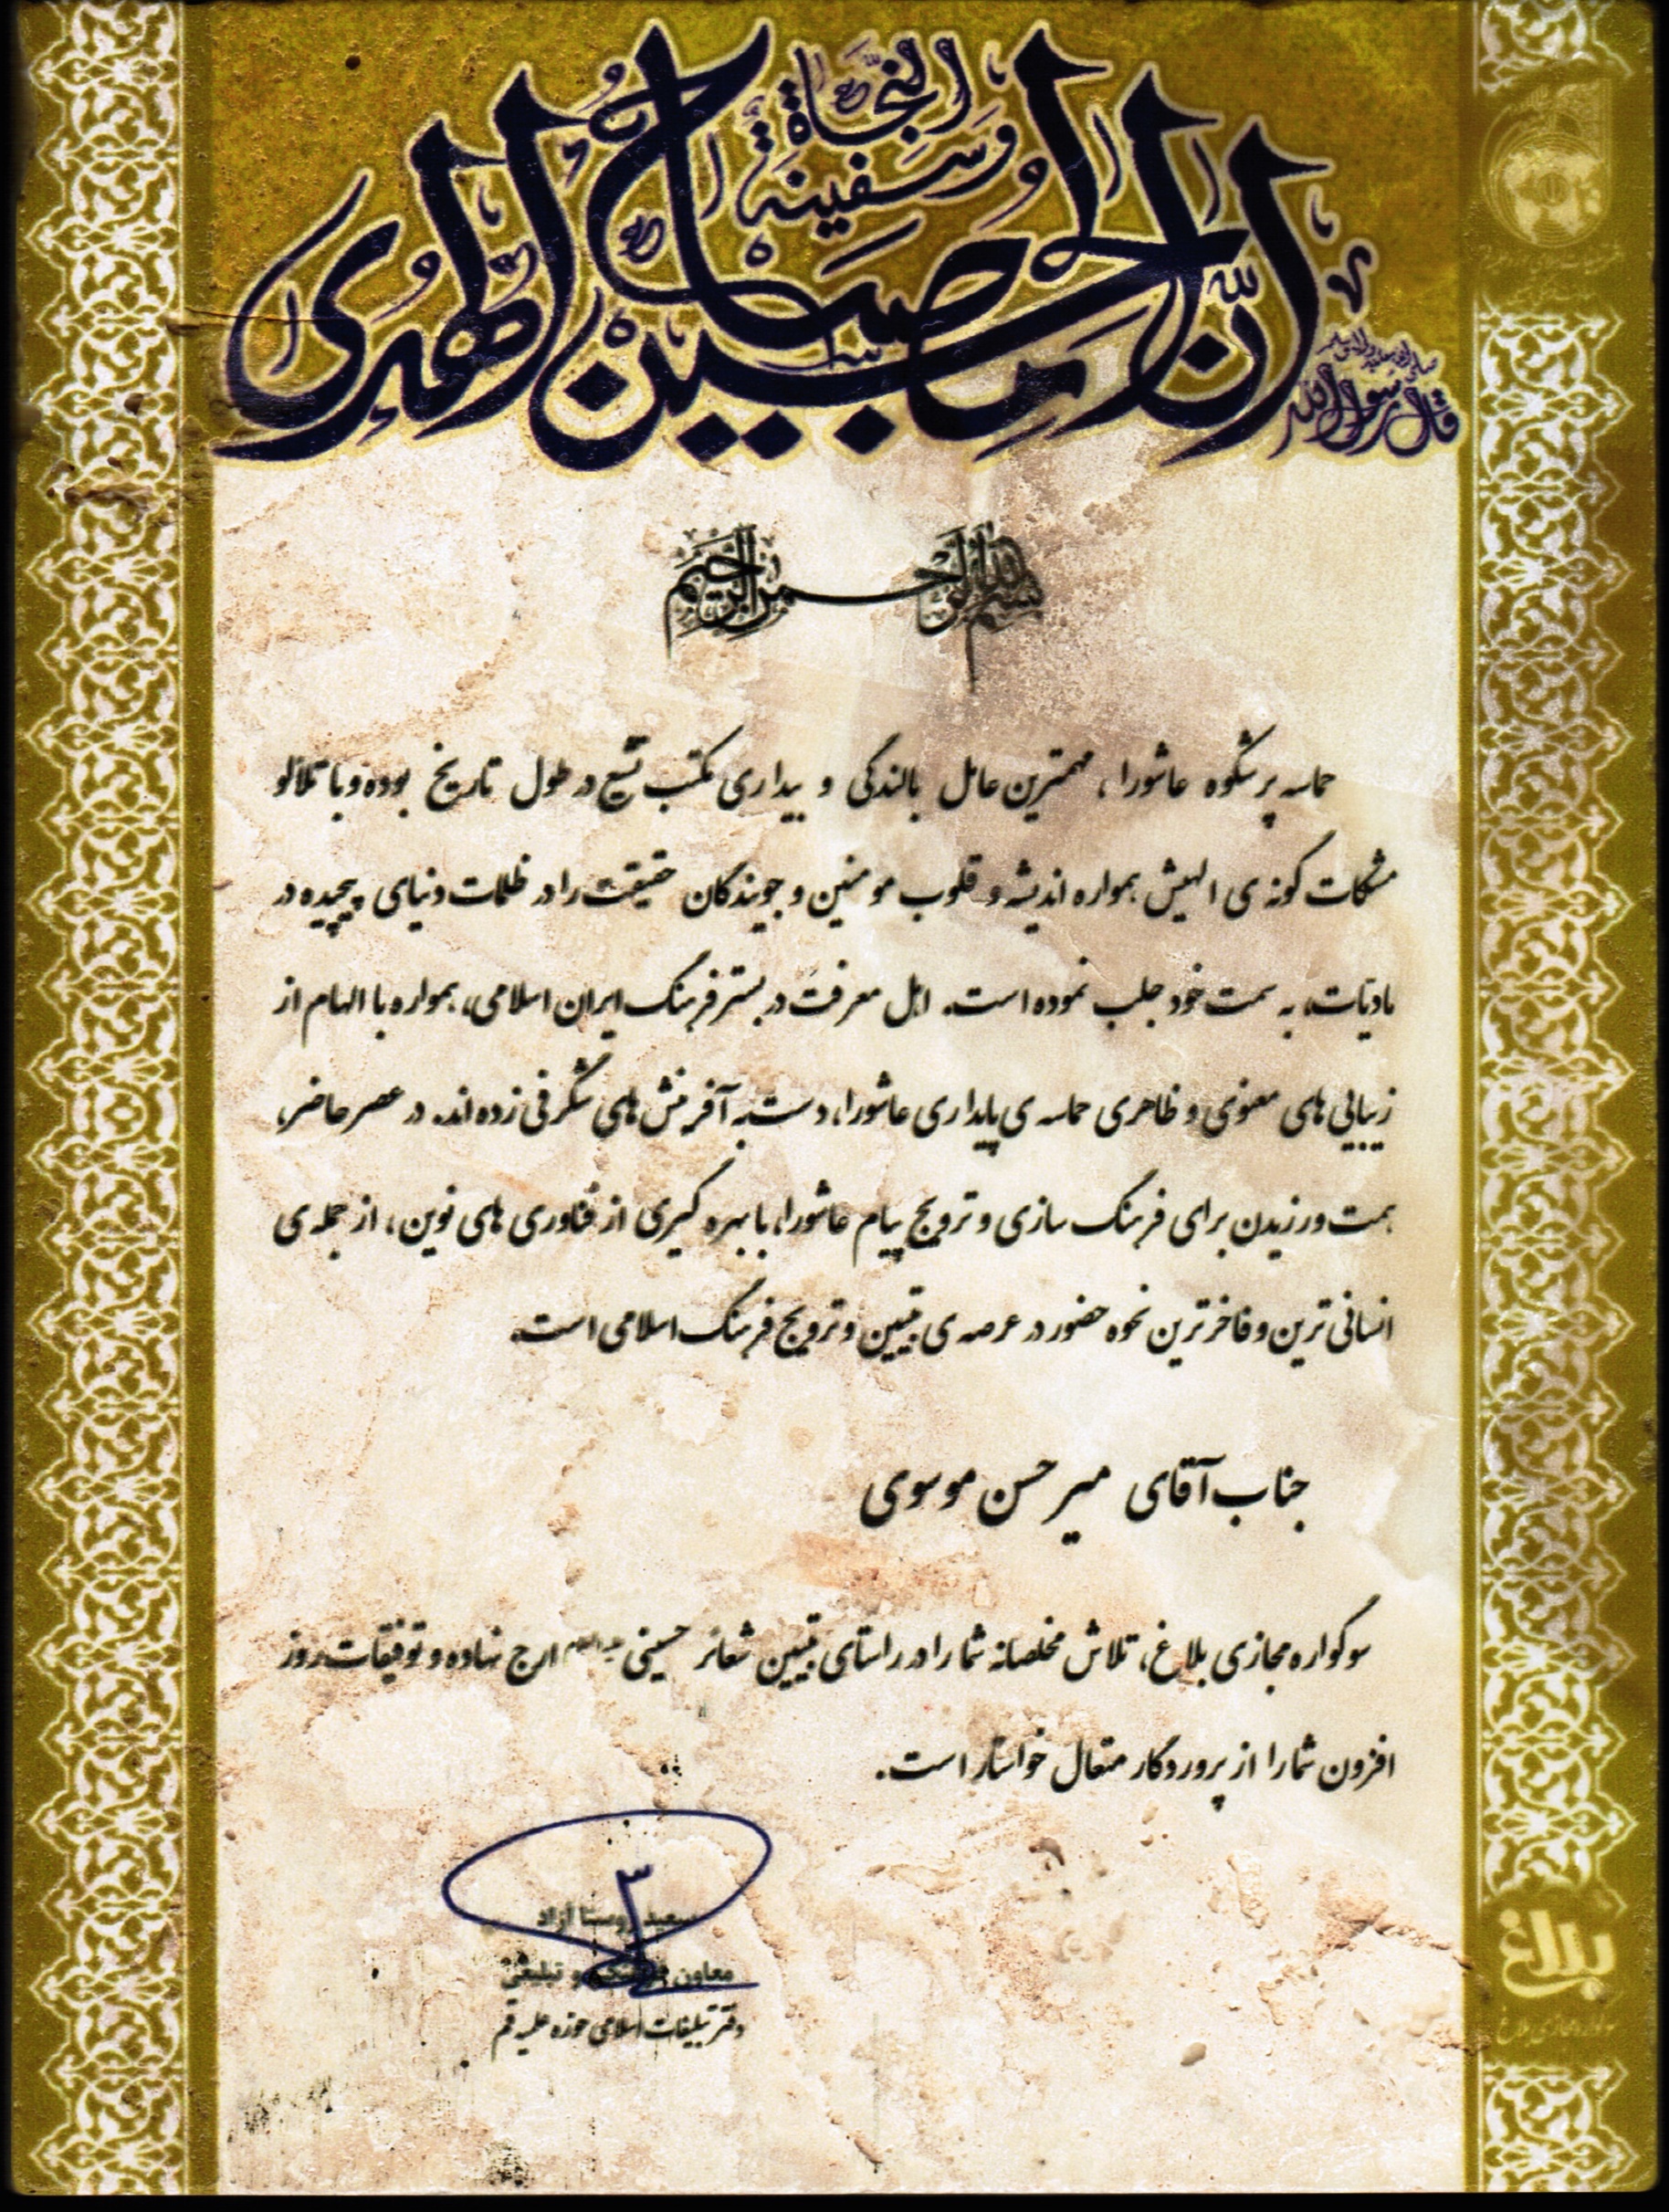 قال رسول الله
صلی الله علیه و آله و سلم
ان الحسین مصباح الهدی
و سفینة النجاة
بسم الله الرحمن الرحیم
حماسه پرشکوه عاشورا، مهمترین عامل بالندگی و بیداری مکتب تشیع در طول تاریخ بوده و با تلألو
مشکات گونه ی الهیش همواره اندیشه و قلوب مومنین و جویندگان حقیقت را در ظلمات دنیای پیچیده در
مادیات، به سمت خود جلب نموده است. اهل معرفت در بستر فرهنگ ایران اسلامی، همواره با الهام از
زیبایی های معنوی و ظاهری حماسه ی پایداری عاشورا، دست به آفرینش های شگرفی زده اند. در عصر حاضر،
همت ورزیدن برای فرهنگ سازی و ترویج پیام عاشورا، با بهره گیری از فناوری های نوین، از جمله ی
انسانی ترین و فاخرترین نحوه حضور در عرصه ی تبیین و ترویج فرهنگ اسلامی است.
جناب آقای میر حسن موسوی
سوگواره مجازی بلاغ، تلاش مخلصانه شما را در راستای تبیین شعائر حسینی علیه السلام ارج نهاده و توفیقات روز
افزون شما را از پروردگار متعال خواستار است.
سعید روستا آزاد
معاون فرهنگی و تبلیغی
دفتر تبلیغات اسلامی حوزه علمیه قم
بلاغ
سوگواره مجازی بلاغ